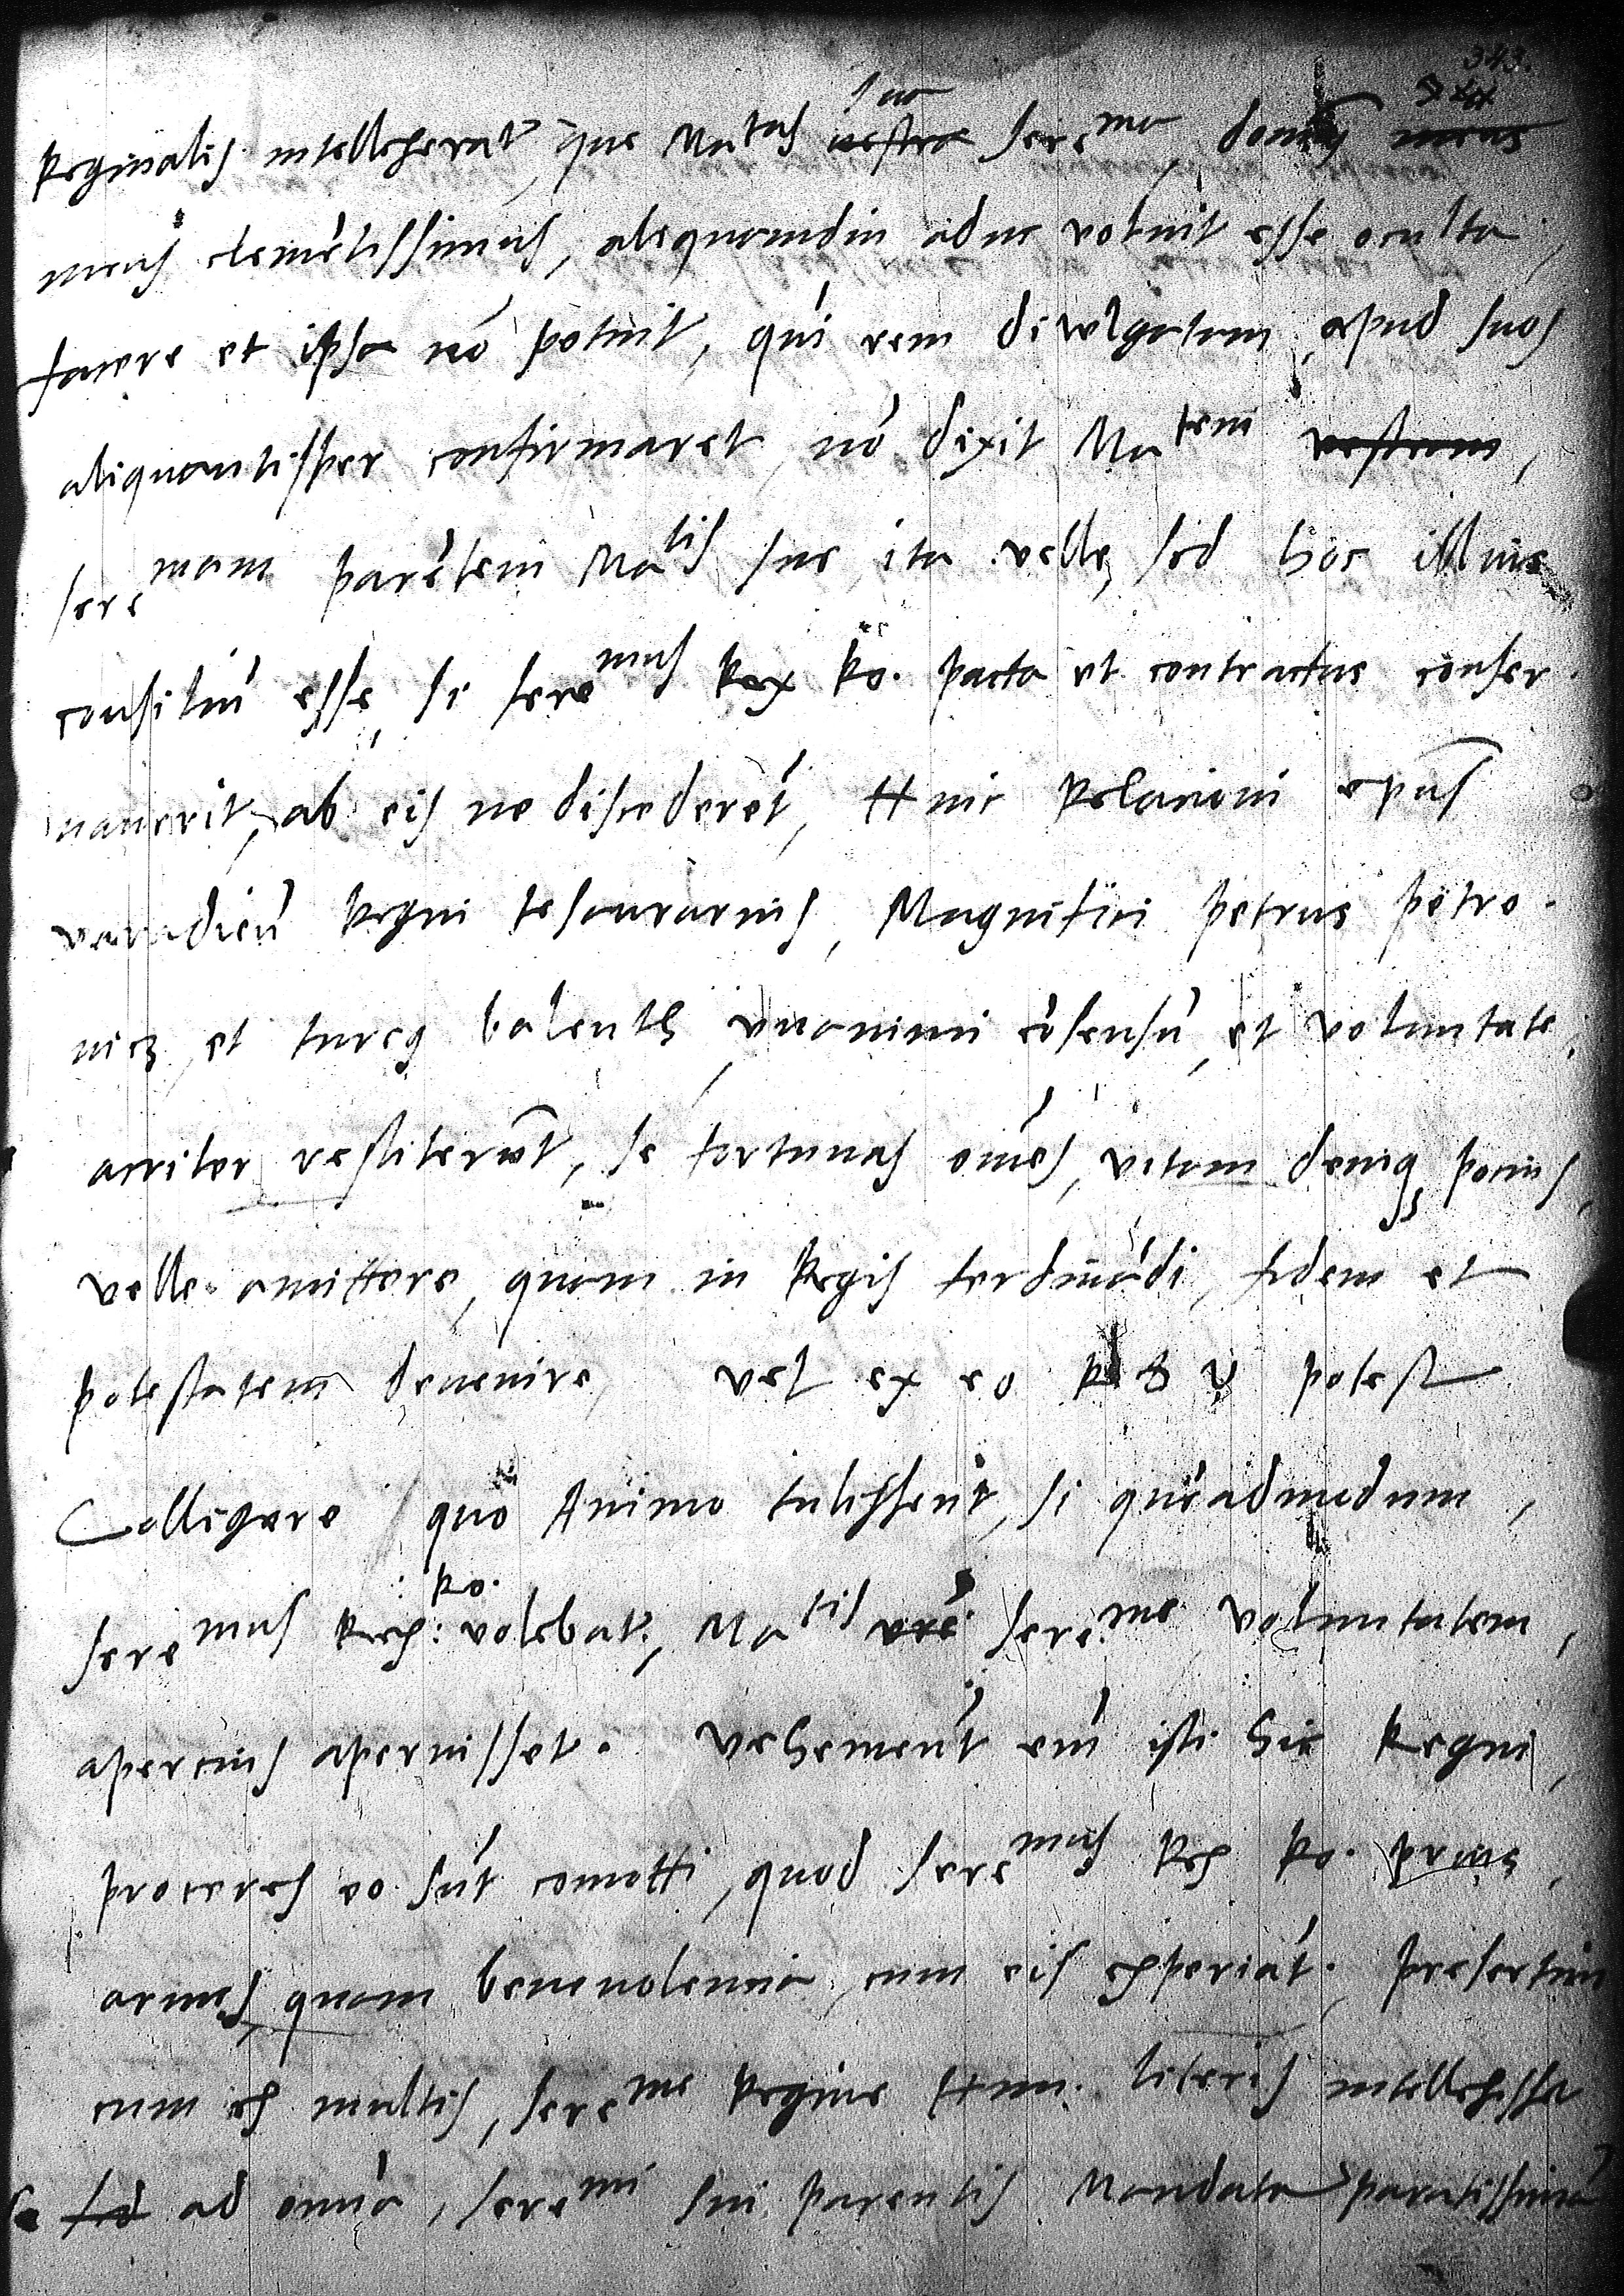 343.
sua
Reginalis intellexerat, que Ma tas vestra sere ma, domĩs meus Rex
meus clemẽtissimus, aliquamdiu aduc voluit esse oculta,
facere et ipsa nõ potuit, quĩ rem diwlgatam apud suos
aliquantisper confirmaret, nõ dixit Ma tem vestram,
sere mam parẽtem Ma tis sue ita velle, sed hoc illius
consiliũ esse, si sere mus Rex Ro. pacta et contractus conser
uauerit, ab eis ne discederet, Huic Relacioni epus
varadieñ Regni tesaurarius, Magnifici petrus petro
uicz, et turcq balenth, vnanimi cõsensu, et voluntate
acriter restiterũt, se fortunas oṁes, vitam deniq3 pocius,
velle amittere, quam in Regis ferdinãdi, fidem et
potestatem deuenire, vel ex eo potest
Colligere, quo Animo tulissent, si quẽadmodum,
Ro.
sere mus Rex: volebat, Ma tis vrẽ sere me voluntatem,
apercius aperuisset. vehement eñ isti hic Regni,
proceres eo sũt comotti, quod sere mus Rex Ro. prius,
armis, quam beneuolencia, cum eis experiat, presertim
cum ex multis, sere me Regine Hun. literis intellexissẽ
se sed ad omnĩa, sere mi sui parentis Mandata paratissimã